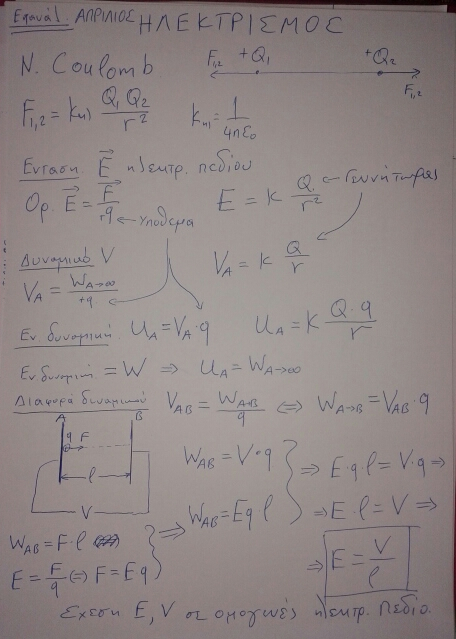 Επαναλ. ΑΠΡΙΛΙΟΣ ΗΛΕΚΤΡΙΣΜΟΣ
N. Coulomb F₁,₂ +Q₁ +Q₂ F₁,₂
F₁,₂ = Kηλ Q₁Q₂/r² Kηλ = 1/4πε₀
Ενταση E⃗ ηλεκτρ. πεδίου
Ορ. E⃗ = F⃗/+q ← υπόθεμα E = K Q/r² ← Γεννήτωρας
Δυναμικό V V_A = K Q/r
V_A = W_A→∞/+q
Εν. δυναμική U_A = V_A·q U_A = K Q·q/r
Εν δυναμική = W ⇒ U_A = W_A→∞
Διαφορά δυναμικού V_AB = W_A→B/q ⇔ W_A→B = V_AB·q
A B
q F
l
V
W_AB = V·q
W_AB = Eq l
⇒ E·q·l = V·q ⇒
⇒ E·l = V ⇒
W_AB = F·l
E = F/q ⇔ F = Eq
⇒
⇒ E = V/l
σχεση E, V σε ομογενές ηλεκτρ. πεδίο.